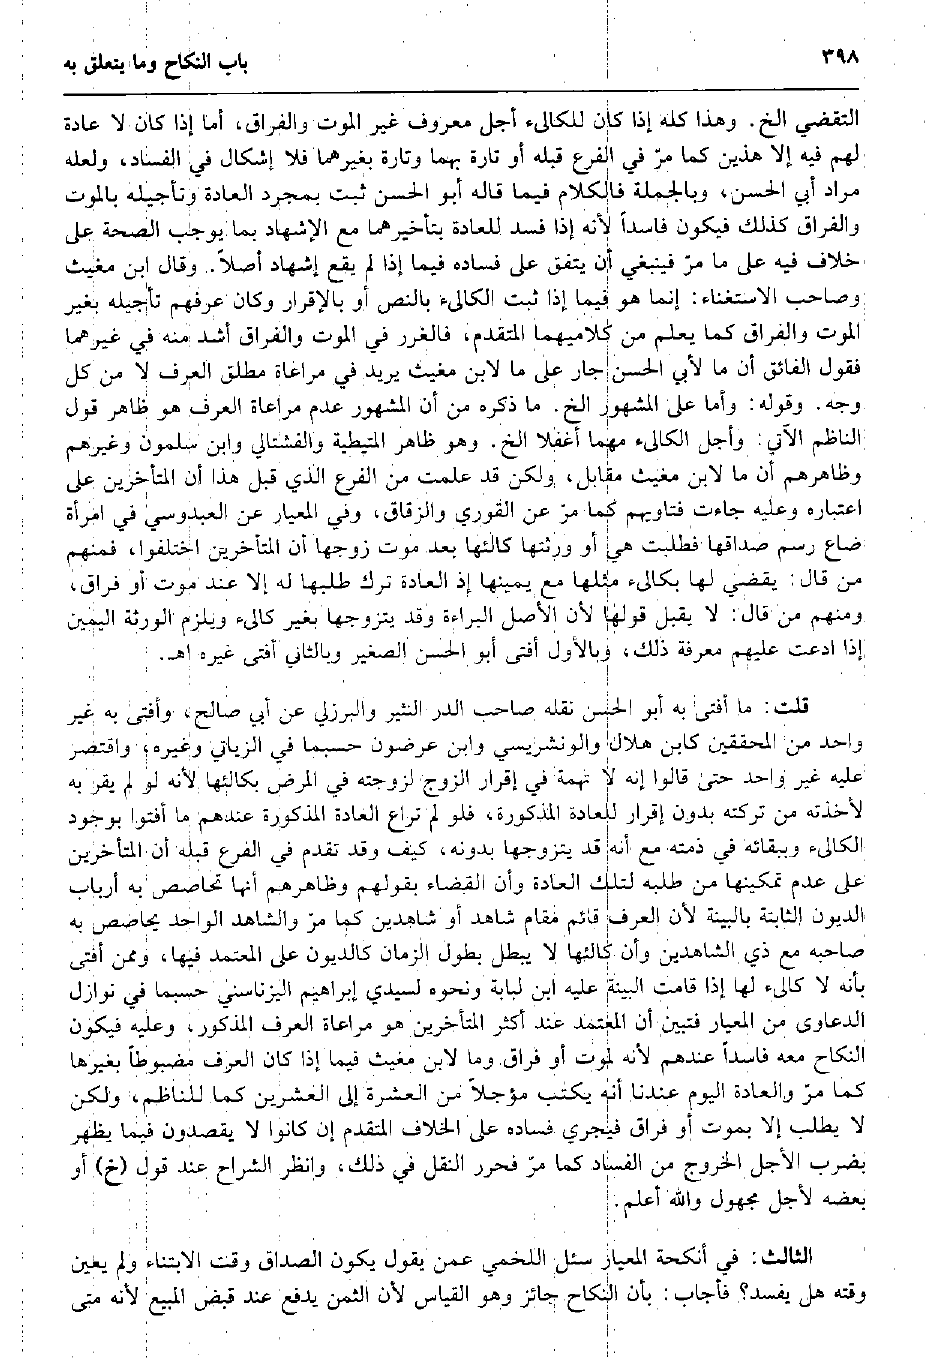 ٣٩٨
باب النكاح وما يتعلق به
التقضي الخ. وهذا كله إذا كان للكالىء أجل معروف غير الموت والفراق، أما إذا كان لا عادة
لهم فيه إلا هذين كما مرّ في الفرع قبله أو تارة بهما وتارة بغيرهما فلا إشكال في الفساد، ولعله
مراد أبي الحسن، وبالجملة فالكلام فيما قاله أبو الحسن ثبت بمجرد العادة وتأجيله بالموت
والفراق كذلك فيكون فاسداً لأنه إذا فسد للعادة بتأخيرهما مع الإشهاد بما يوجب الصحة على
خلاف فيه على ما مرّ فينبغي أن يتفق على فساده فيما إذا لم يقع إشهاد أصلاً. وقال ابن مغيث
وصاحب الاستغناء: إنما هو فيما إذا ثبت الكالىء بالنص أو بالإقرار وكان عرفهم تأجيله بغير
الموت والفراق كما يعلم من كلاميهما المتقدم، فالغرر في الموت والفراق أشد منه في غيرهما
فقول الفائق أن ما لأبي الحسن جار على ما لابن مغيث يريد في مراعاة مطلق العرف لا من كل
وجه. وقوله: وأما على المشهور الخ. ما ذكره من أن المشهور عدم مراعاة العرف هو ظاهر قول
الناظم الآتي: وأجل الكالىء مهما أغفلا الخ. وهو ظاهر المتيطية والفشتالي وابن سلمون وغيرهم
وظاهرهم أن ما لابن مغيث مقابل، ولكن قد علمت من الفرع الذي قبل هذا أن المتأخرين على
اعتباره وعليه جاءت فتاويهم كما مرّ عن القوري والزقاق، وفي المعيار عن العبدوسي في امرأة
ضاع رسم صداقها فطلبت هي أو ورثتها كالئها بعد موت زوجها أن المتأخرين اختلفوا، فمنهم
من قال: يقضي لها بكالىء مثلها مع يمينها إذ العادة ترك طلبها له إلا عند موت أو فراق،
ومنهم من قال: لا يقبل قولها لأن الأصل البراءة وقد يتزوجها بغير كالىء ويلزم الورثة اليمين
إذا ادعت عليهم معرفة ذلك، وبالأول أفتى أبو الحسن الصغير وبالثاني أفتى غيره اهـ.
قلت: ما أفتى به أبو الحسن نقله صاحب الدر النثير والبرزلي عن أبي صالح، وأفتى به غير
واحد من المحققين كابن هلال والونشريسي وابن عرضون حسبما في الزياتي وغيره، واقتصر
عليه غير واحد حتى قالوا إنه لا تهمة في إقرار الزوج لزوجته في المرض بكالئها لأنه لو لم يقر به
لأخذته من تركته بدون إقرار للعادة المذكورة، فلو لم تراع العادة المذكورة عندهم ما أفتوا بوجود
الكالىء وببقائه في ذمته مع أنه قد يتزوجها بدونه، كيف وقد تقدم في الفرع قبله أن المتأخرين
على عدم تمكينها من طلبه لتلك العادة وأن القضاء بقولهم وظاهرهم أنها تحاصص به أرباب
الديون الثابتة بالبينة لأن العرف قائم مقام شاهد أو شاهدين كما مرّ والشاهد الواحد يحاصص به
صاحبه مع ذي الشاهدين وأن كالئها لا يبطل بطول الزمان كالديون على المعتمد فيها، وممن أفتى
بأنه لا كالىء لها إذا قامت البينة عليه ابن لبابة ونحوه لسيدي إبراهيم اليزناسني حسبما في نوازل
الدعاوى من المعيار فتبين أن المعتمد عند أكثر المتأخرين هو مراعاة العرف المذكور، وعليه فيكون
النكاح معه فاسداً عندهم لأنه لموت أو فراق وما لابن مغيث فيما إذا كان العرف مضبوطاً بغيرها
كما مرّ والعادة اليوم عندنا أنه يكتب مؤجلاً من العشرة إلى العشرين كما للناظم، ولكن
لا يطلب إلا بموت أو فراق فيجري فساده على الخلاف المتقدم إن كانوا لا يقصدون فيما يظهر
بضرب الأجل الخروج من الفساد كما مرّ فحرر النقل في ذلك، وانظر الشراح عند قول (خ) أو
بعضه لأجل مجهول والله أعلم.
الثالث: في أنكحة المعيار سئل اللخمي عمن يقول يكون الصداق وقت الابتناء ولم يعين
وقته هل يفسد؟ فأجاب: بأن النكاح جائز وهو القياس لأن الثمن يدفع عند قبض المبيع لأنه متى